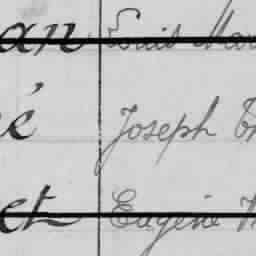 an Louis Mar
é Joseph Em
et Eugène